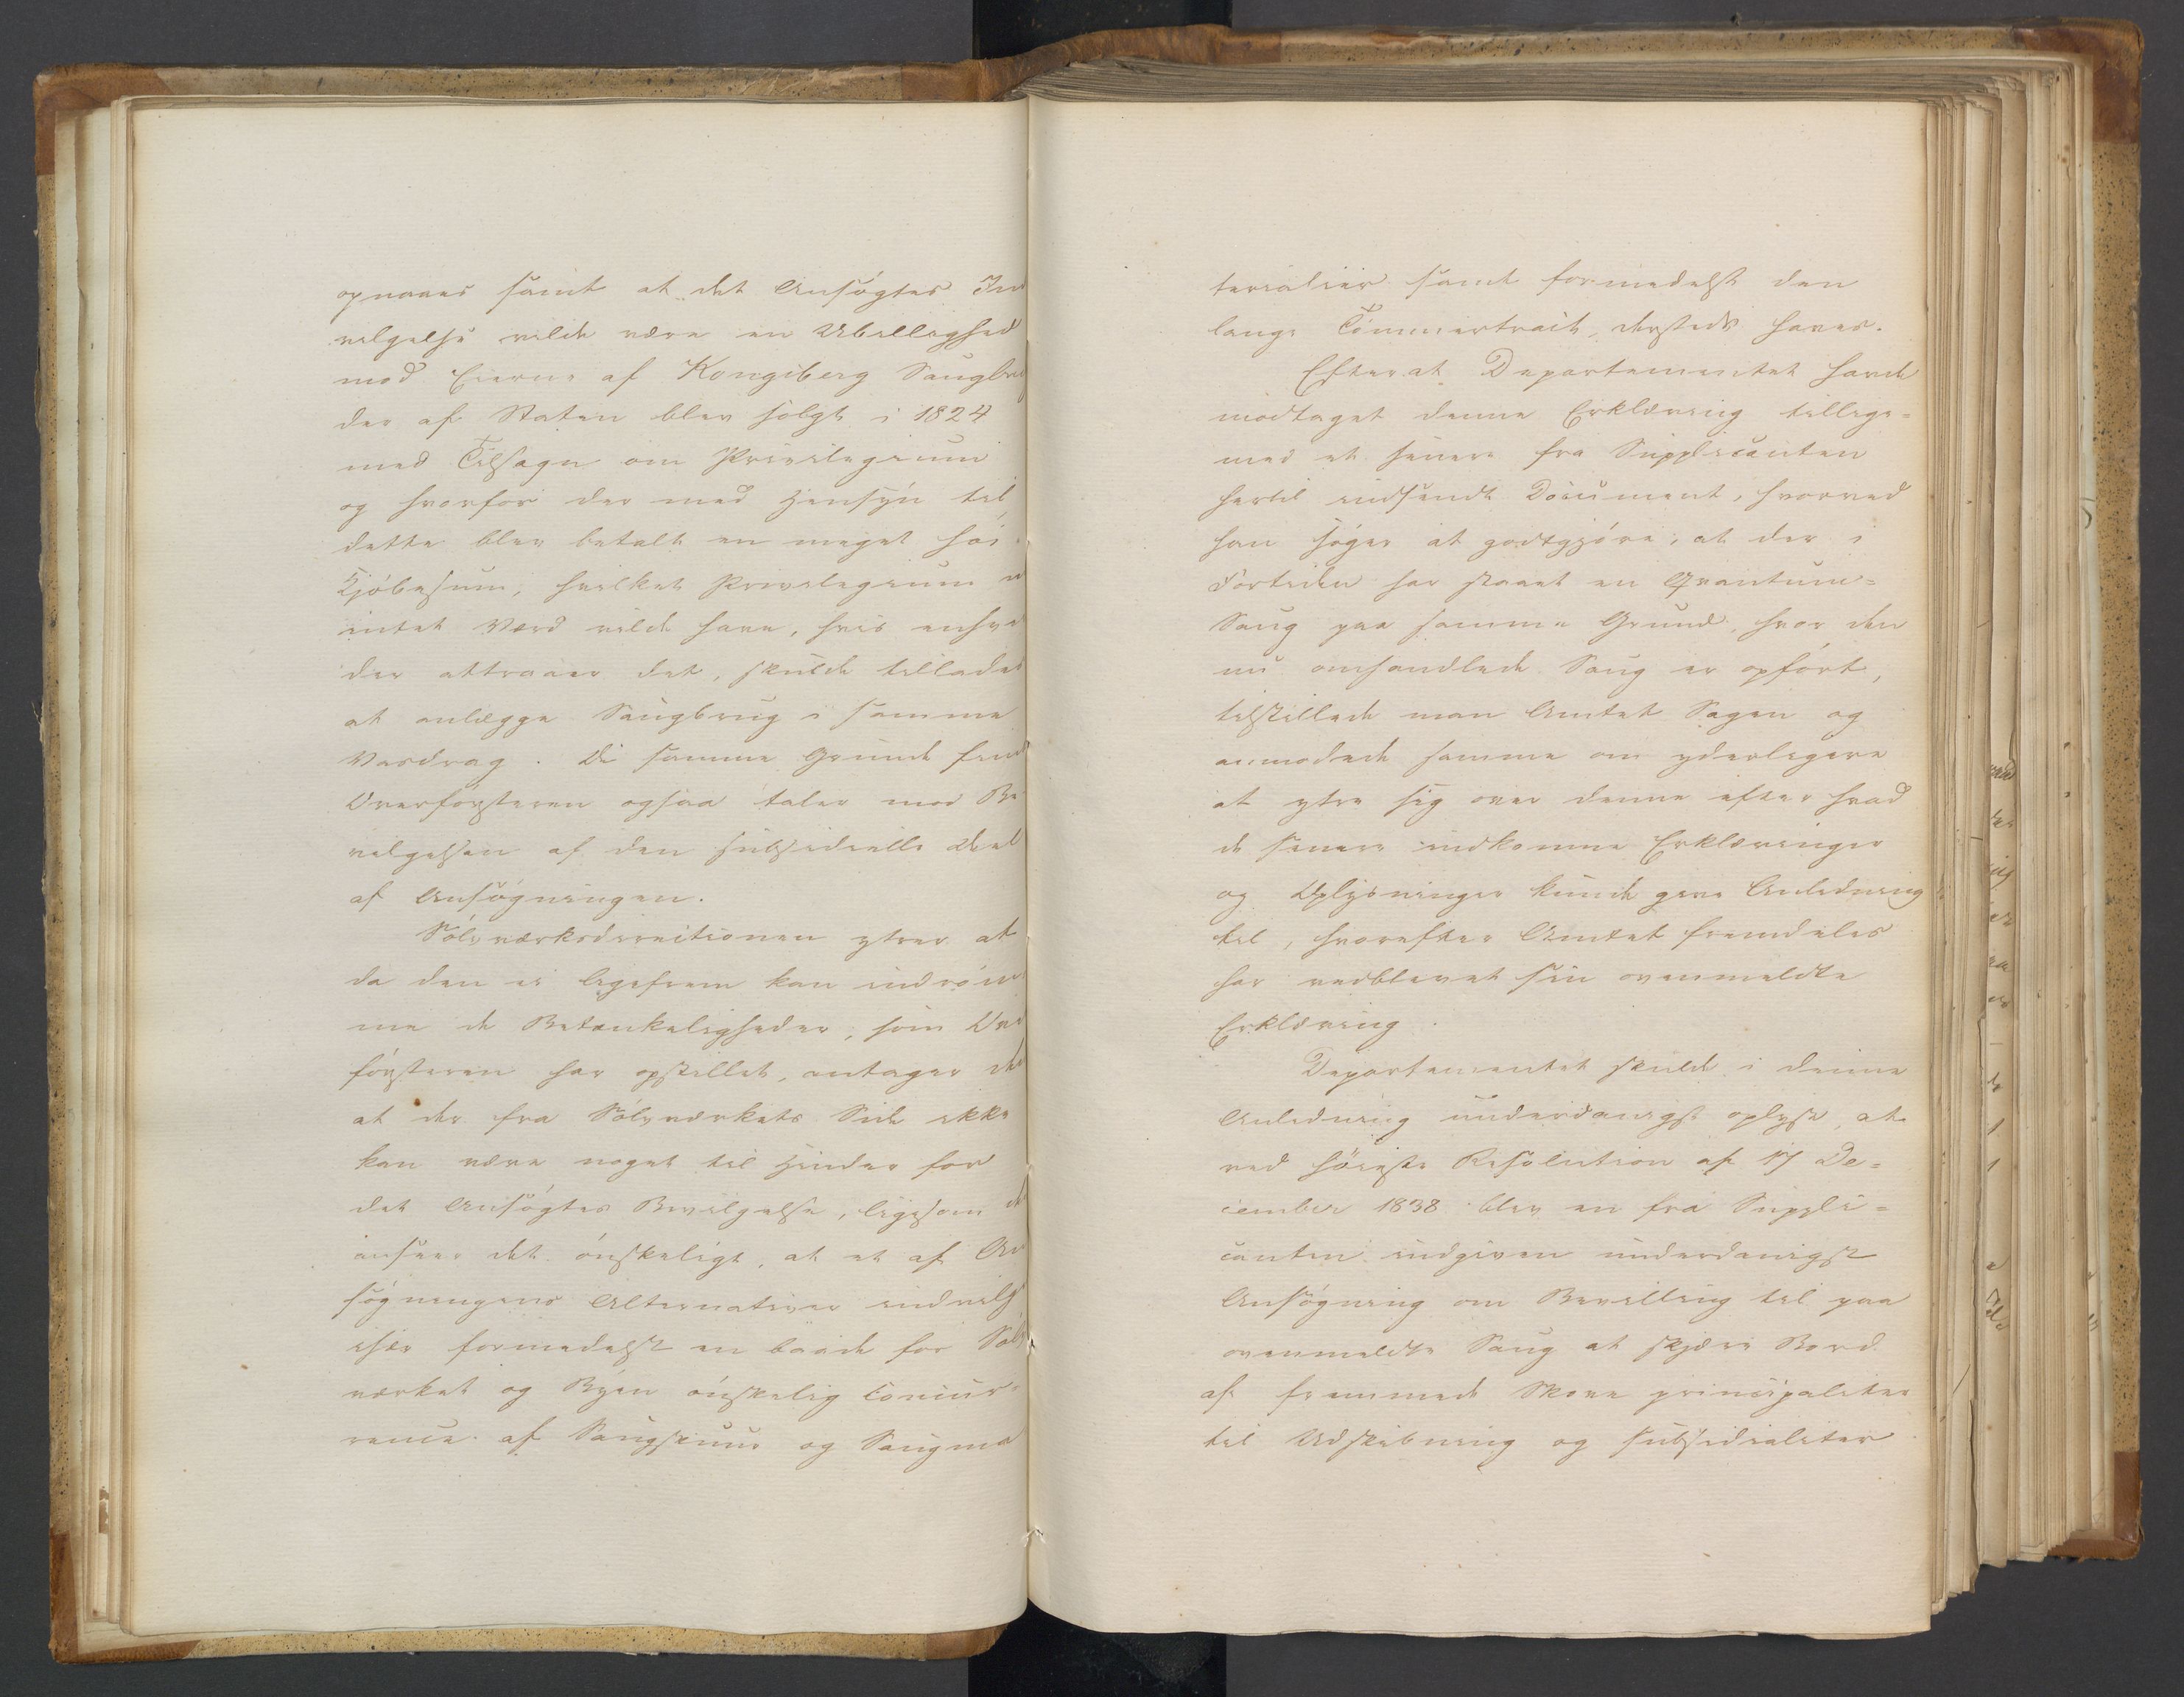 opnaaes samt at det Ansøgtes Ind
vilgelse vilde være en Ubillighed
mod Eierne af Kongsberg Saugbrug
der af Staten blev solgt i 1824
med Tilsagn om Privilegium
og hvorfor der med Hensyn til
dette blev betalt en meget høi
Kjøbesum, hvilket Privilegium
intet Værd vilde have, hvis enhver
der attraaer det, skulde tillades
at anlægge Saugbrug i samme
Vasdrag. Di samme Grunde
Overførsteren ogsaa taler mod Be
vilgelsen af den subsidielle Deel
af Ansøgningen.
Sølvværksdirectionen ytrer at
da den ei ligefrem kan indrøm
me de Betænkeligheder, som Over
førsteren har opstillet, antager den
at der fra Sølvværkets Side ikke
kan være noget til Hinder for
det Ansøgtes Bevilgelse, ligesom
ansees det ønskeligt, at et af An
søgningens Alternativer indvilg
især formedelst en baade for Sølv
værket og Byen ønskelig Concur-
rence af Saugskuur og Saugma
terialier samt formedelst den
lange Tømmertrait, dersteds haves.
Efterat Departementet havde
modtaget denne Erklæring tillige=
med et senere fra Supplicanten
hertil indsendt Document, hvorved
han søger at godtgjøre, at der i
Fortiden har staaet en Qvantum=
Saug paa samme Grund, hvor den
nu omhandlede Saug er opført,
tilstillede man Amtet Sagen og
anmodede samme om yderligere
at ytre sig over denne efter hvad
de senere indkomne Erklæringer
og Oplysninger kunde give Anledning
til, hvorefter Amtet fremdeles
har vedblevet sin ovenmeldte
Erklæring.
Departementet skulde i denne
Anledning underdanigst oplyse, at
ved høieste Resolution af 17 De=
cember 1838 blev en fra Suppli=
canten indgiven underdanigst
Ansøgning om Bevilling til paa
ovenmeldte Saug at skjære Bord
af fremmede Skove principaliter
til Udskibning og subsidialiter